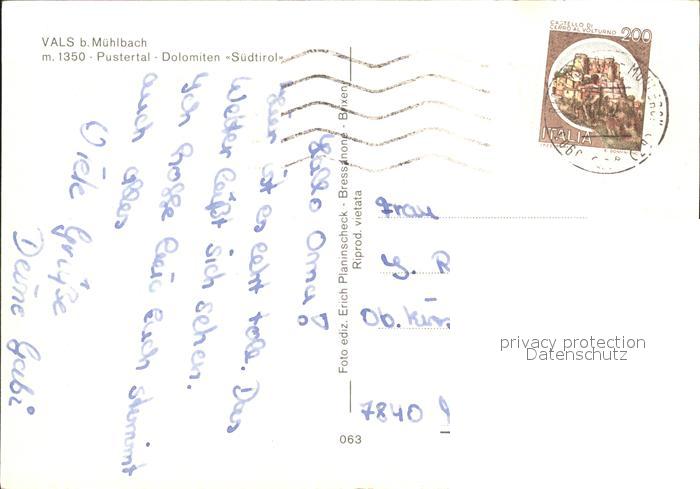 VALS b. Mühlbach
m. 1350 - Pustertal - Dolomiten «Südtirol»
CASTELLO DI
CERRO AL VOLTURNO
200
ITALIA
Hallo Oma!
Hier ist es echt toll. Das
Wetter läßt sich sehen.
Ich hoffe bei Euch stimmt
auch alles
Viele Grüße
Deine Gabi
Foto ediz. Erich Planinscheck - Bressanone - Brixen
Riprod. vietata
Frau
G. R
Ob. Kir
7840
063
privacy protection
Datenschutz